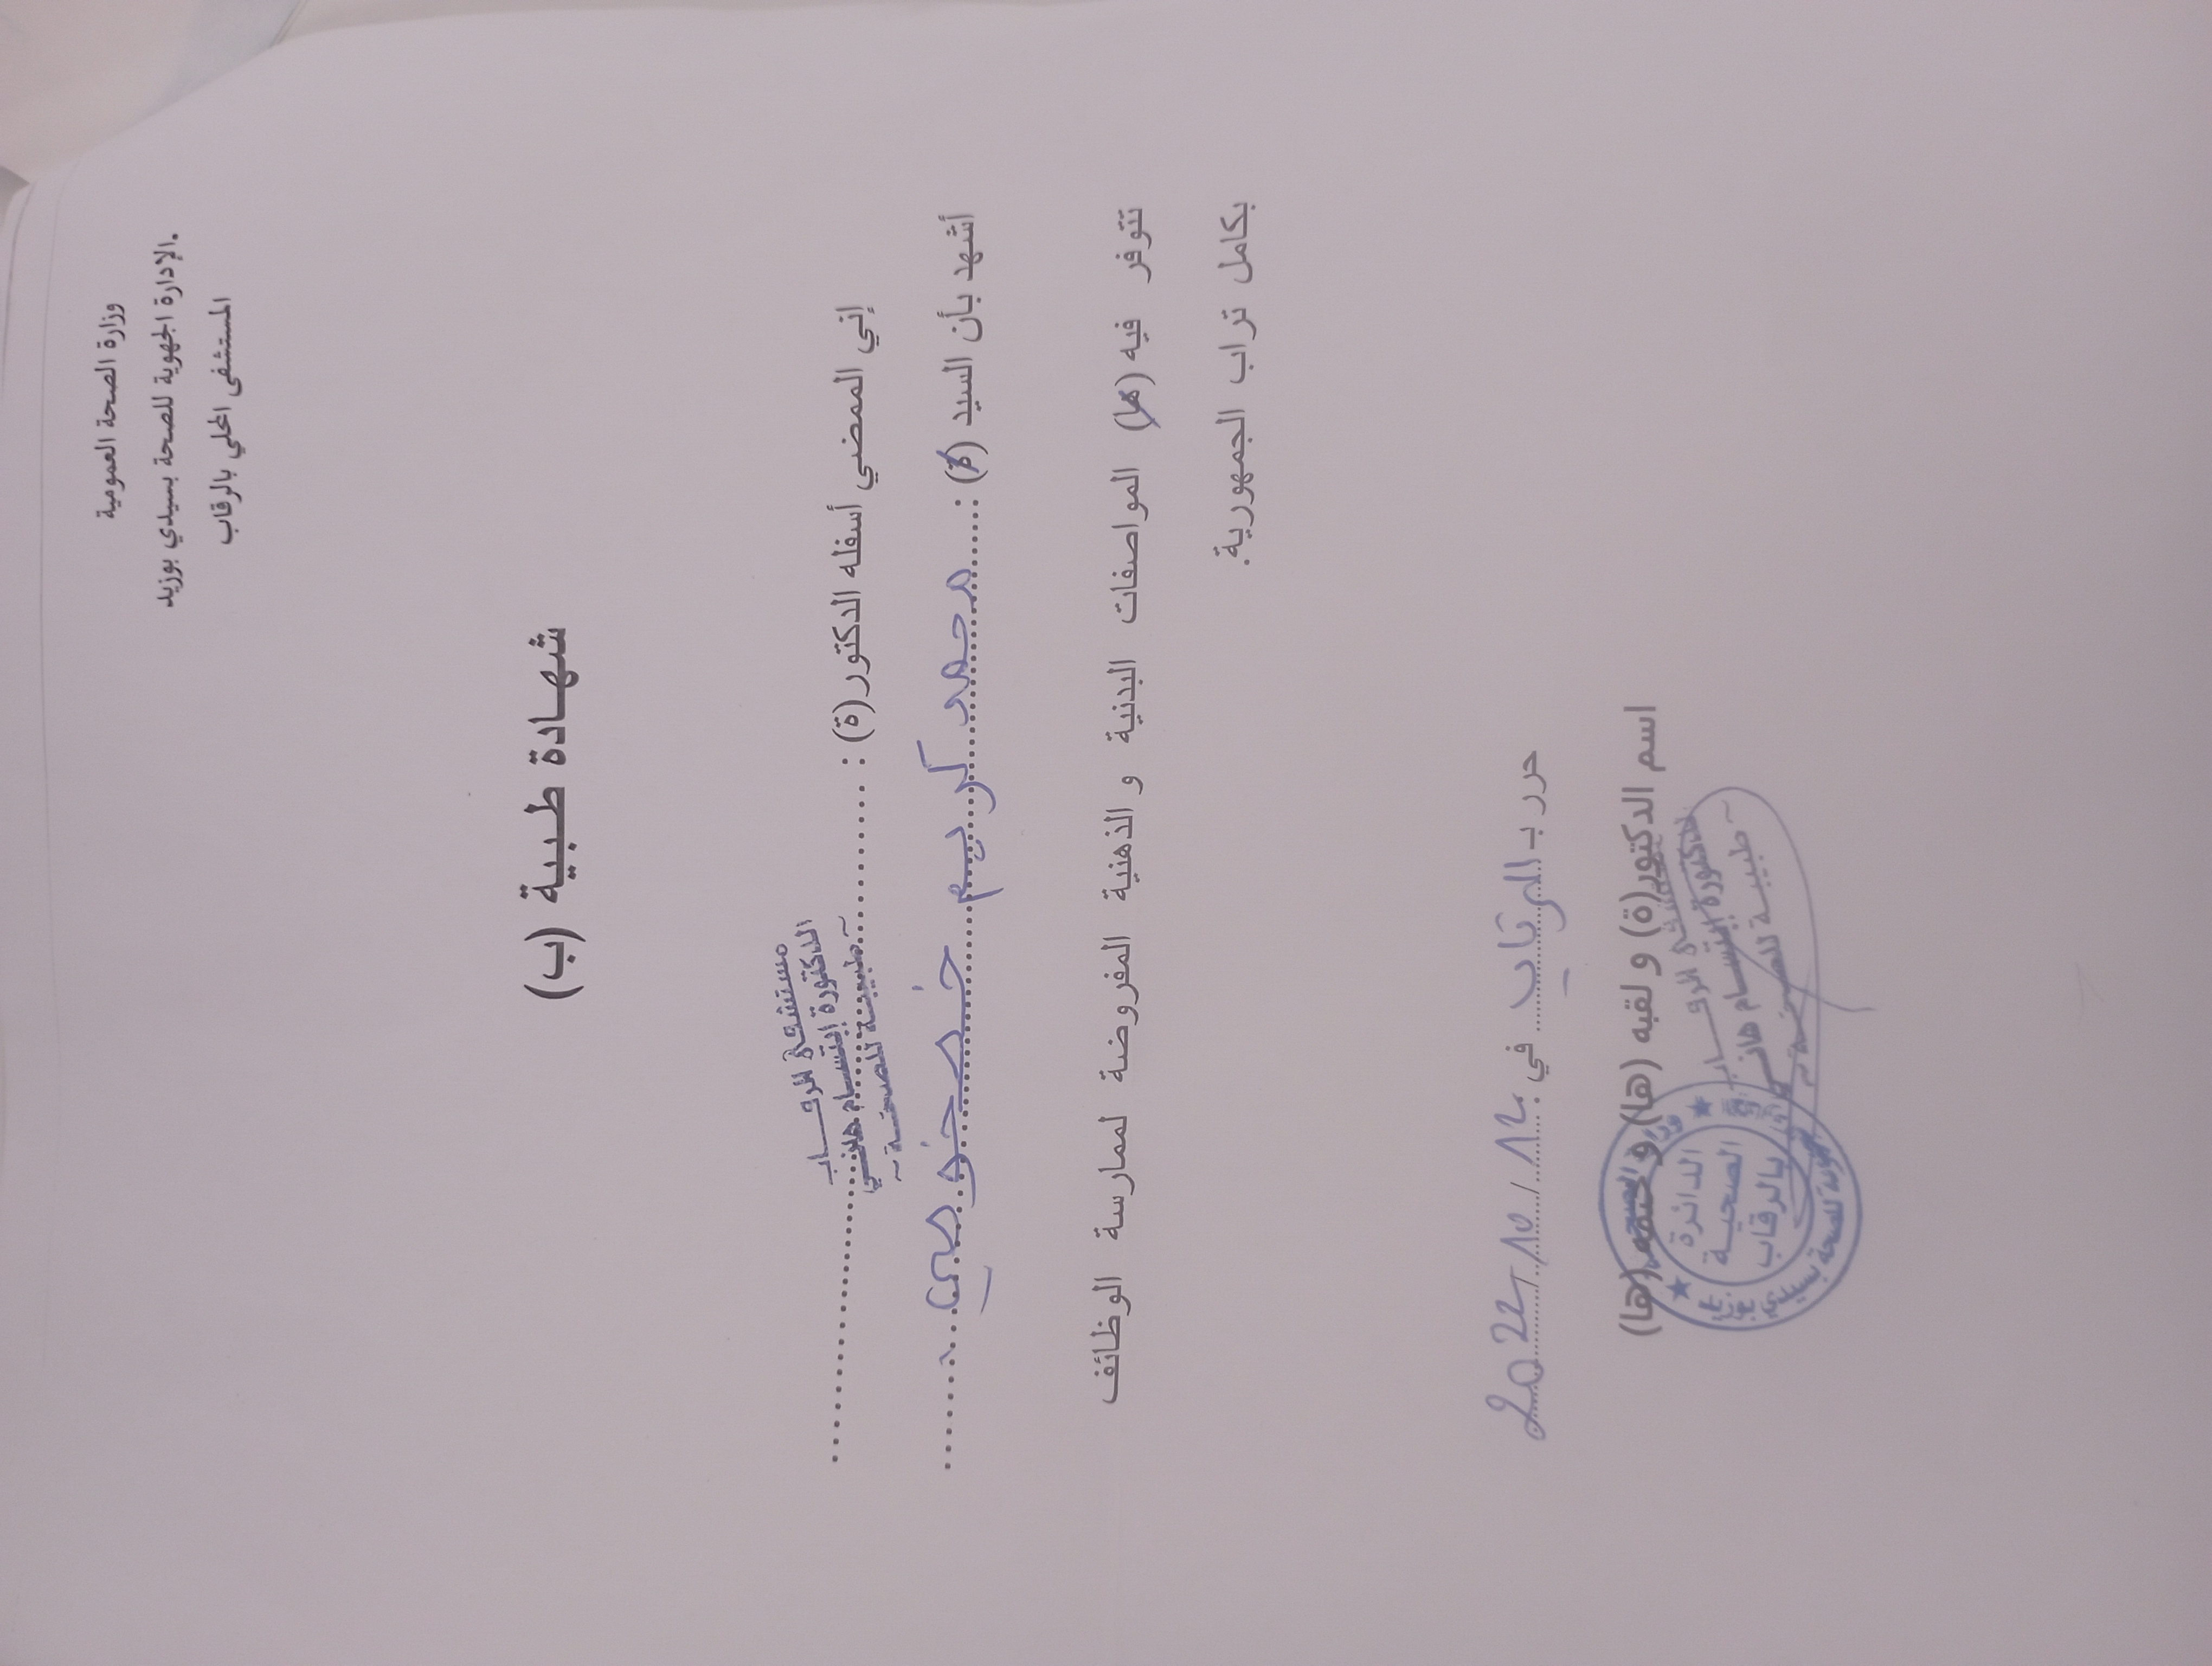 وزارة الصحة العمومية
الإدارة الجهوية للصحة بسيدي بوزيد.
المستشفى المحلي بالرقاب
شهادة طبية (ب)
إني الممضي أسفله الدكتور(ة) :
مستشفى الرقاب
الدكتورة إبتسام هاني
طبيبة للصحة
أشهد بأن السيد (ة) : محمد كريم
تتوفر فيه (ها) المواصفات البدنية و الذهنية المفروضة لممارسة الوظائف
بكامل تراب الجمهورية.
حرر بـ الرقاب في : 12/10/2022
اسم الدكتور(ة) و لقبه (ها) و ختمه (ها)
مستشفى الرقاب
الدكتورة إبتسام هاني
طبيبة للصحة
الدائرة
الصحية
بالرقاب